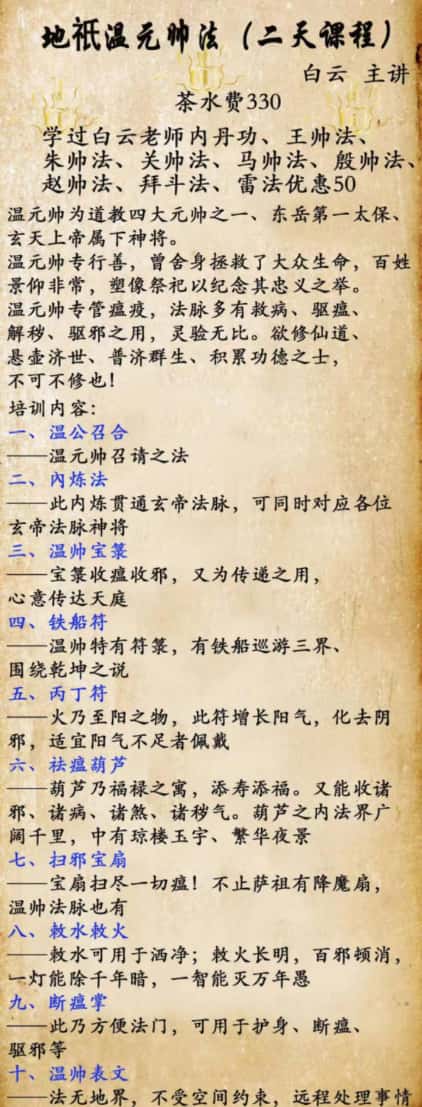 地祇温元帅法（二天课程）
白云 主讲
茶水费330
学过白云老师内丹功、王帅法、
朱帅法、关帅法、马帅法、殷帅法、
赵帅法、拜斗法、雷法优惠50
温元帅为道教四大元帅之一、东岳第一太保、
玄天上帝属下神将。
温元帅专行善，曾舍身拯救了大众生命，百姓
景仰非常，塑像祭祀以纪念其忠义之举。
温元帅专管瘟疫，法脉多有救病、驱瘟、
解秽、驱邪之用，灵验无比。欲修仙道、
悬壶济世、普济群生、积累功德之士，
不可不修也！
培训内容：
一、温公召合
——温元帅召请之法
二、内炼法
——此内炼贯通玄帝法脉，可同时对应各位
玄帝法脉神将
三、温帅宝箓
——宝箓收瘟收邪，又为传递之用，
心意传达天庭
四、铁船符
——温帅特有符箓，有铁船巡游三界、
围绕乾坤之说
五、丙丁符
——火乃至阳之物，此符增长阳气，化去阴
邪，适宜阳气不足者佩戴
六、祛瘟葫芦
——葫芦乃福禄之寓，添寿添福。又能收诸
邪、诸病、诸煞、诸秽气。葫芦之内法界广
阔千里，中有琼楼玉宇、繁华夜景
七、扫邪宝扇
——宝扇扫尽一切瘟！不止萨祖有降魔扇，
温帅法脉也有
八、敕水敕火
——敕水可用于洒净；敕火长明，百邪顿消，
一灯能除千年暗，一智能灭万年愚
九、断瘟掌
——此乃方便法门，可用于护身、断瘟、
驱邪等
十、温帅表文
——法无地界，不受空间约束，远程处理事情